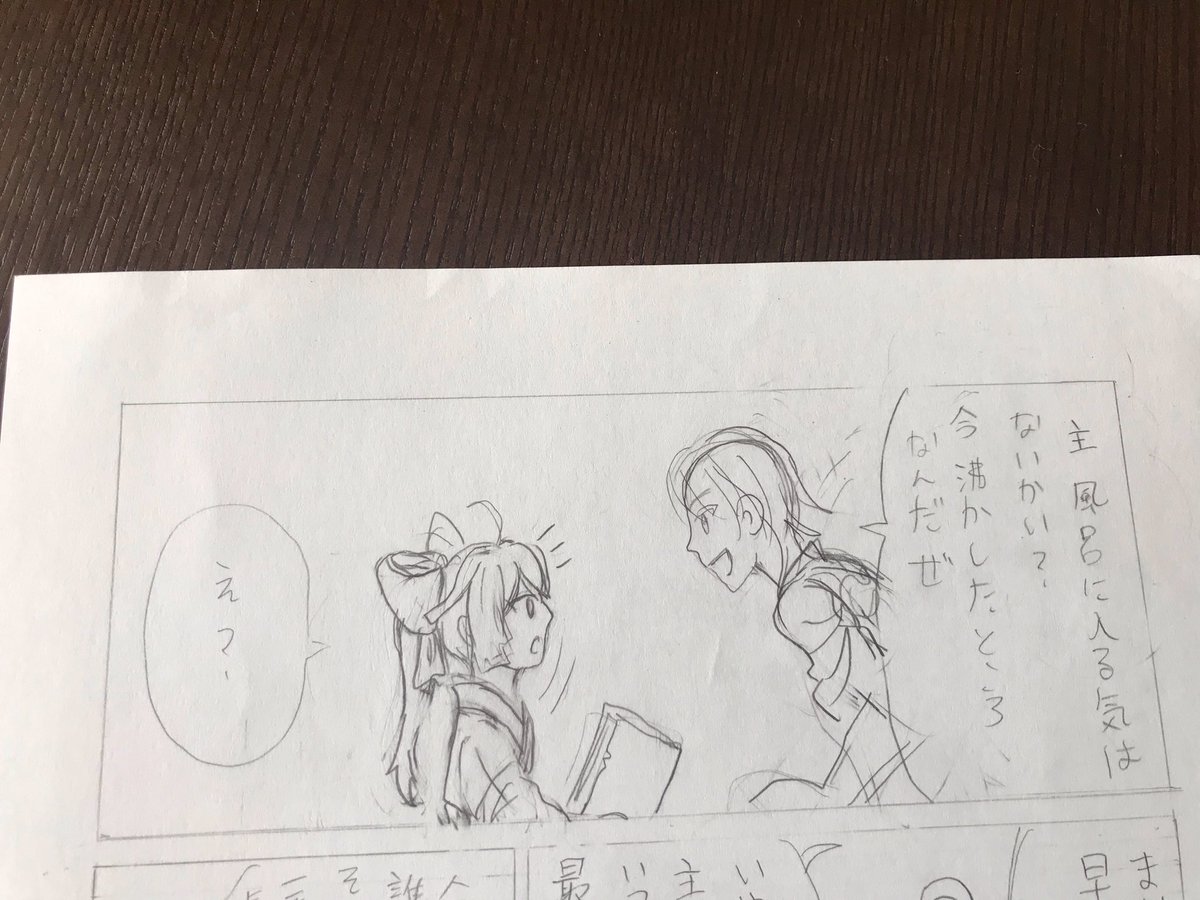 主 風呂に入る気は
ないかい?
今沸かしたところ
なんだぜ
えっ
ま
早
主
いつ
最
人
誰
そ